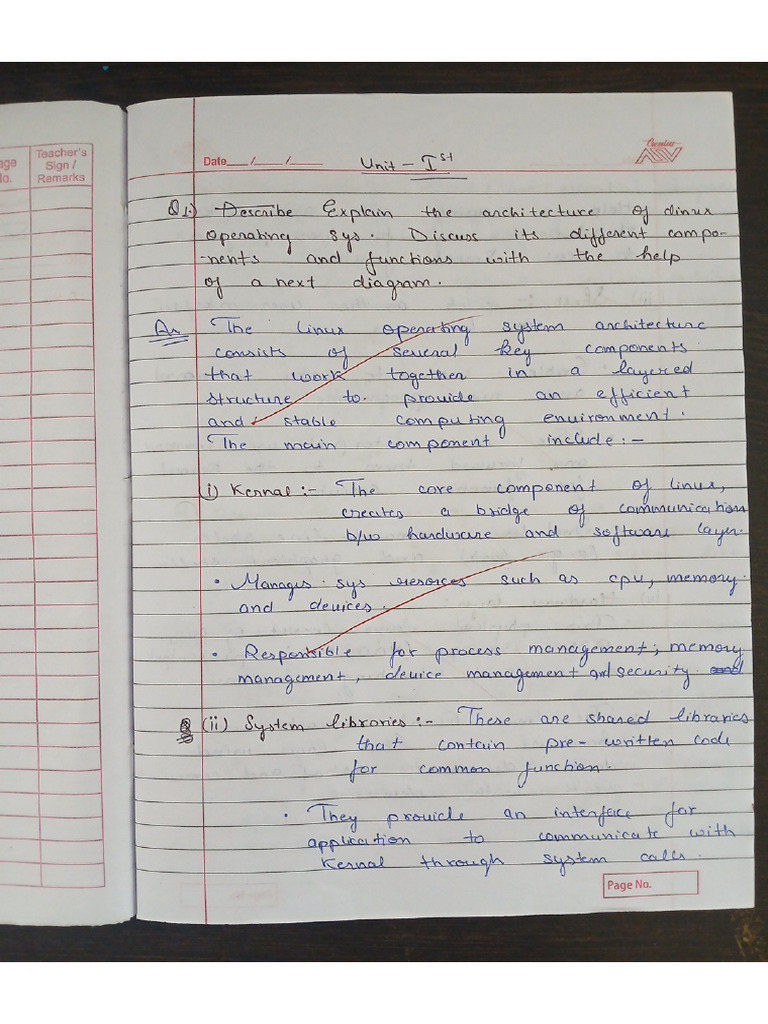 age
No.
Teacher's
Sign /
Remarks
Date___/___/___
Unit - Ist
Q1.) Describe Explain the architecture of Linux
operating sys. Discuss its different compo-
-nents and functions with the help
of a next diagram.
An The Linux operating system architecture
consists of several key components
that work together in a layered
structure to provide an efficient
and stable computing environment.
The main component include :-
(i) Kernal :- The core component of linux,
creates a bridge of communication
b/w hardware and software layer.
• Manages sys resorces such as cpu, memory
and devices.
• Responsible for process management, memory
management, device management and security
(ii) System libraries :- These are shared libraries
that contain pre-written code
for common function.
• They provide an interface for
application to communicate with
Kernal through system calls.
Page No.